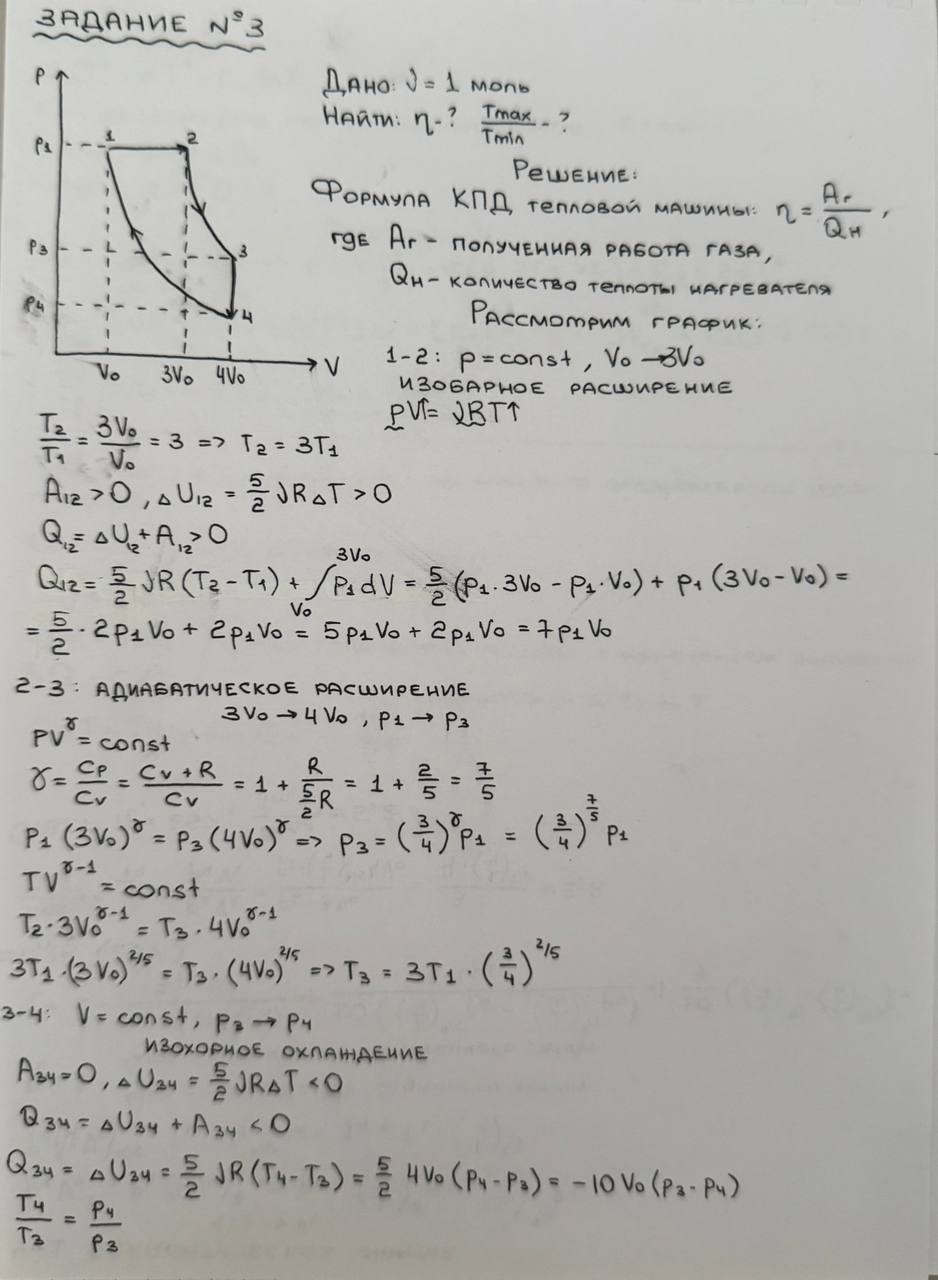 ЗАДАНИЕ №3
P
P1
P3
P4
1
2
3
4
V0
3V0
4V0
V
Дано: ν = 1 моль
Найти: η - ? Tmax/Tmin - ?
Решение:
Формула КПД тепловой машины: η = Aг/Qн,
где Aг - полученная работа газа,
Qн - количество теплоты нагревателя
Рассмотрим график:
1-2: p = const, V0 → 3V0
изобарное расширение
pV↑ = νRT↑
T2/T1 = 3V0/V0 = 3 => T2 = 3T1
A12 > 0, ΔU12 = 5/2 νRΔT > 0
Q12 = ΔU12 + A12 > 0
Q12 = 5/2 νR(T2 - T1) + ∫V0^3V0 p1dV = 5/2 (p1·3V0 - p1·V0) + p1(3V0 - V0) =
= 5/2 · 2p1V0 + 2p1V0 = 5p1V0 + 2p1V0 = 7p1V0
2-3: адиабатическое расширение
3V0 → 4V0, p1 → p3
PV^γ = const
γ = Cp/Cv = (Cv + R)/Cv = 1 + R/(5/2 R) = 1 + 2/5 = 7/5
P1(3V0)^γ = P3(4V0)^γ => P3 = (3/4)^γ P1 = (3/4)^7/5 P1
TV^γ-1 = const
T2·3V0^γ-1 = T3·4V0^γ-1
3T1·(3V0)^2/5 = T3·(4V0)^2/5 => T3 = 3T1·(3/4)^2/5
3-4: V = const, p3 → p4
изохорное охлаждение
A34 = 0, ΔU34 = 5/2 νRΔT < 0
Q34 = ΔU34 + A34 < 0
Q34 = ΔU34 = 5/2 νR(T4 - T3) = 5/2 4V0(p4 - p3) = -10V0(p3 - p4)
T4/T3 = P4/P3